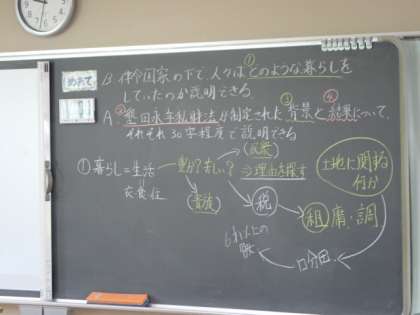 めあて
B 律令国家の下で人々は①どのような暮らしを
していたのか説明できる
A ②墾田永年私財法が制定された③背景と④結果について、
それぞれ30字程度で説明できる
①暮らし=生活
衣食住
豊か?苦しい?
(庶民)
(貴族)
⇒理由を探す
税
租庸・調
土地に関する
何か
6才以上の
口分田